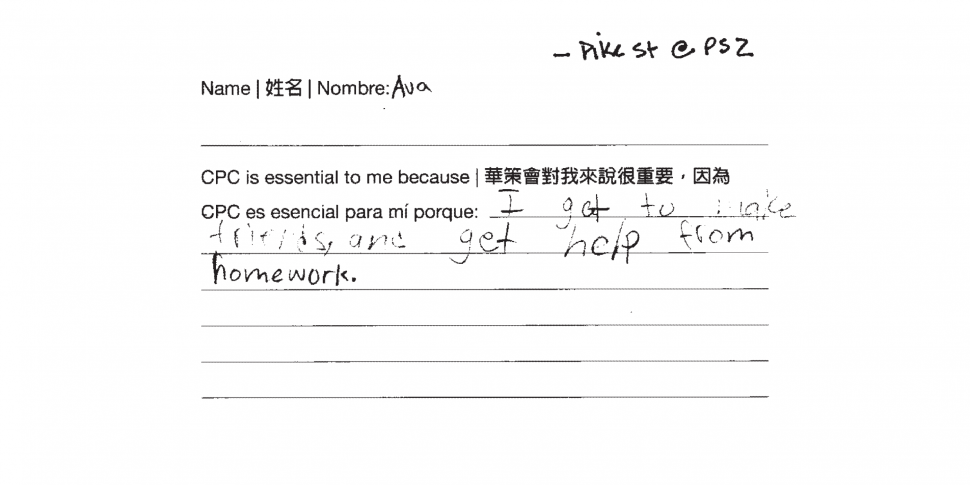 - Pike st @ PS2
Name | 姓名 | Nombre: Ava
CPC is essential to me because | 華策會對我來說很重要，因為
CPC es esencial para mí porque: I got to make
friends, and get help from
homework.